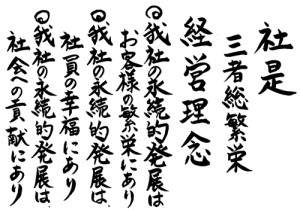 社是
三者総繁栄
経営理念
◎我社の永続的発展は
お客様の繁栄にあり
◎我社の永続的発展は、
社員の幸福にあり
◎我社の永続的発展は、
社会への貢献にあり